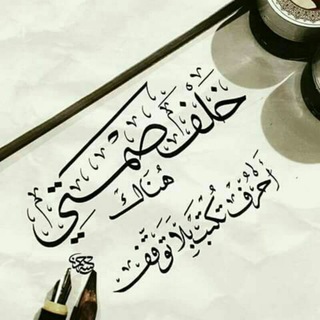 خَلفَ صَمْتي
هُنَاكَ
أحْرُفٌ تُكْتَبُ بِلَا تَوَقُّف